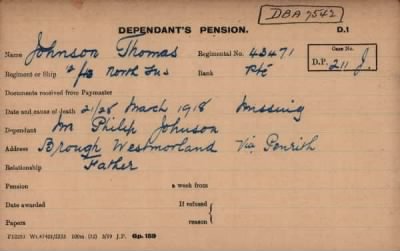 DBA 7542
DEPENDANT'S PENSION. D.1
Name Johnson Thomas Regimental No. 43471 Case No.
Regiment or Ship North Fus Rank Pte D.P. 211 J.
Documents received from Paymaster
Date and cause of death 21/28 March 1918 Missing
Dependant Mr Philip Johnson
Address Brough Westmorland Via Penrith
Relationship Father
Pension a week from
Date awarded If refused
Papers reason
100m. 5/19 J.P. Gp. 159